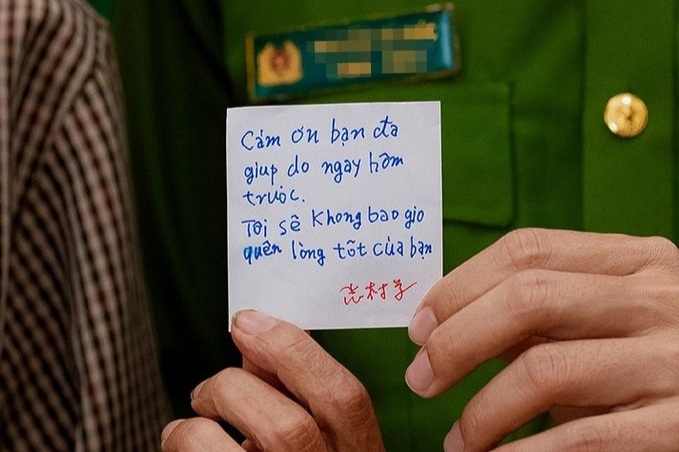 Cám ơn bạn đa
giup do ngay hôm
trước.
Tôi sẽ Khong bao gio
quên lòng tốt của bạn
志村孝